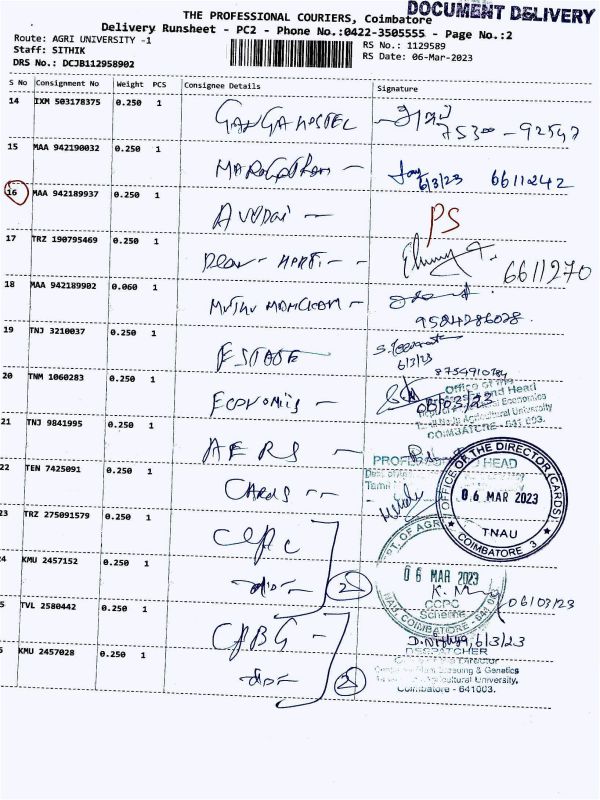 DOCUMENT DELIVERY
THE PROFESSIONAL COURIERS, Coimbatore
Delivery Runsheet - PC2 - Phone No.:0422-3505555 - Page No.:2
Route: AGRI UNIVERSITY -1
RS No.: 1129589
Staff: SITHIK
RS Date: 06-Mar-2023
DRS No.: DCJB112958902
S No Consignment No Weight PCS Consignee Details Signature
14 IXM 503178375 0.250 1 GANGA HOSTEL
75300-92547
15 MAA 942190032 0.250 1
6/3/23 6611242
16 MAA 942189937 0.250 1 PS
17 TRZ 190795469 0.250 1 Dean - 6611270
18 MAA 942189902 0.060 1 MUTHU
9584286028
19 TNJ 3210037 0.250 1 ESTATE
6/3/23
20 TNM 1060283 0.250 1 ECONOMICS 03/03/23
Office of the
and Head
Economics
Tamil Nadu Agricultural University
COIMBATORE - 641 003.
21 TNJ 9841995 0.250 1 AERS
PROFESSOR AND HEAD
22 TEN 7425091 0.250 1 CARDS
OFFICE OF THE DIRECTOR (CARDS)
06 MAR 2023
TNAU
COIMBATORE 3
23 TRZ 275091579 0.250 1 CCPC
KMU 2457152 0.250 1 -do- 2
06 MAR 2023
CCPC
Scheme
COIMBATORE - 641 003
06/03/23
TVL 2580442 0.250 1 CPBG
6/3/23
DESPATCHER
KMU 2457028 0.250 1 -do- 2
Director
Centre for Plant Breeding & Genetics
Tamil Nadu Agricultural University,
Coimbatore - 641003.